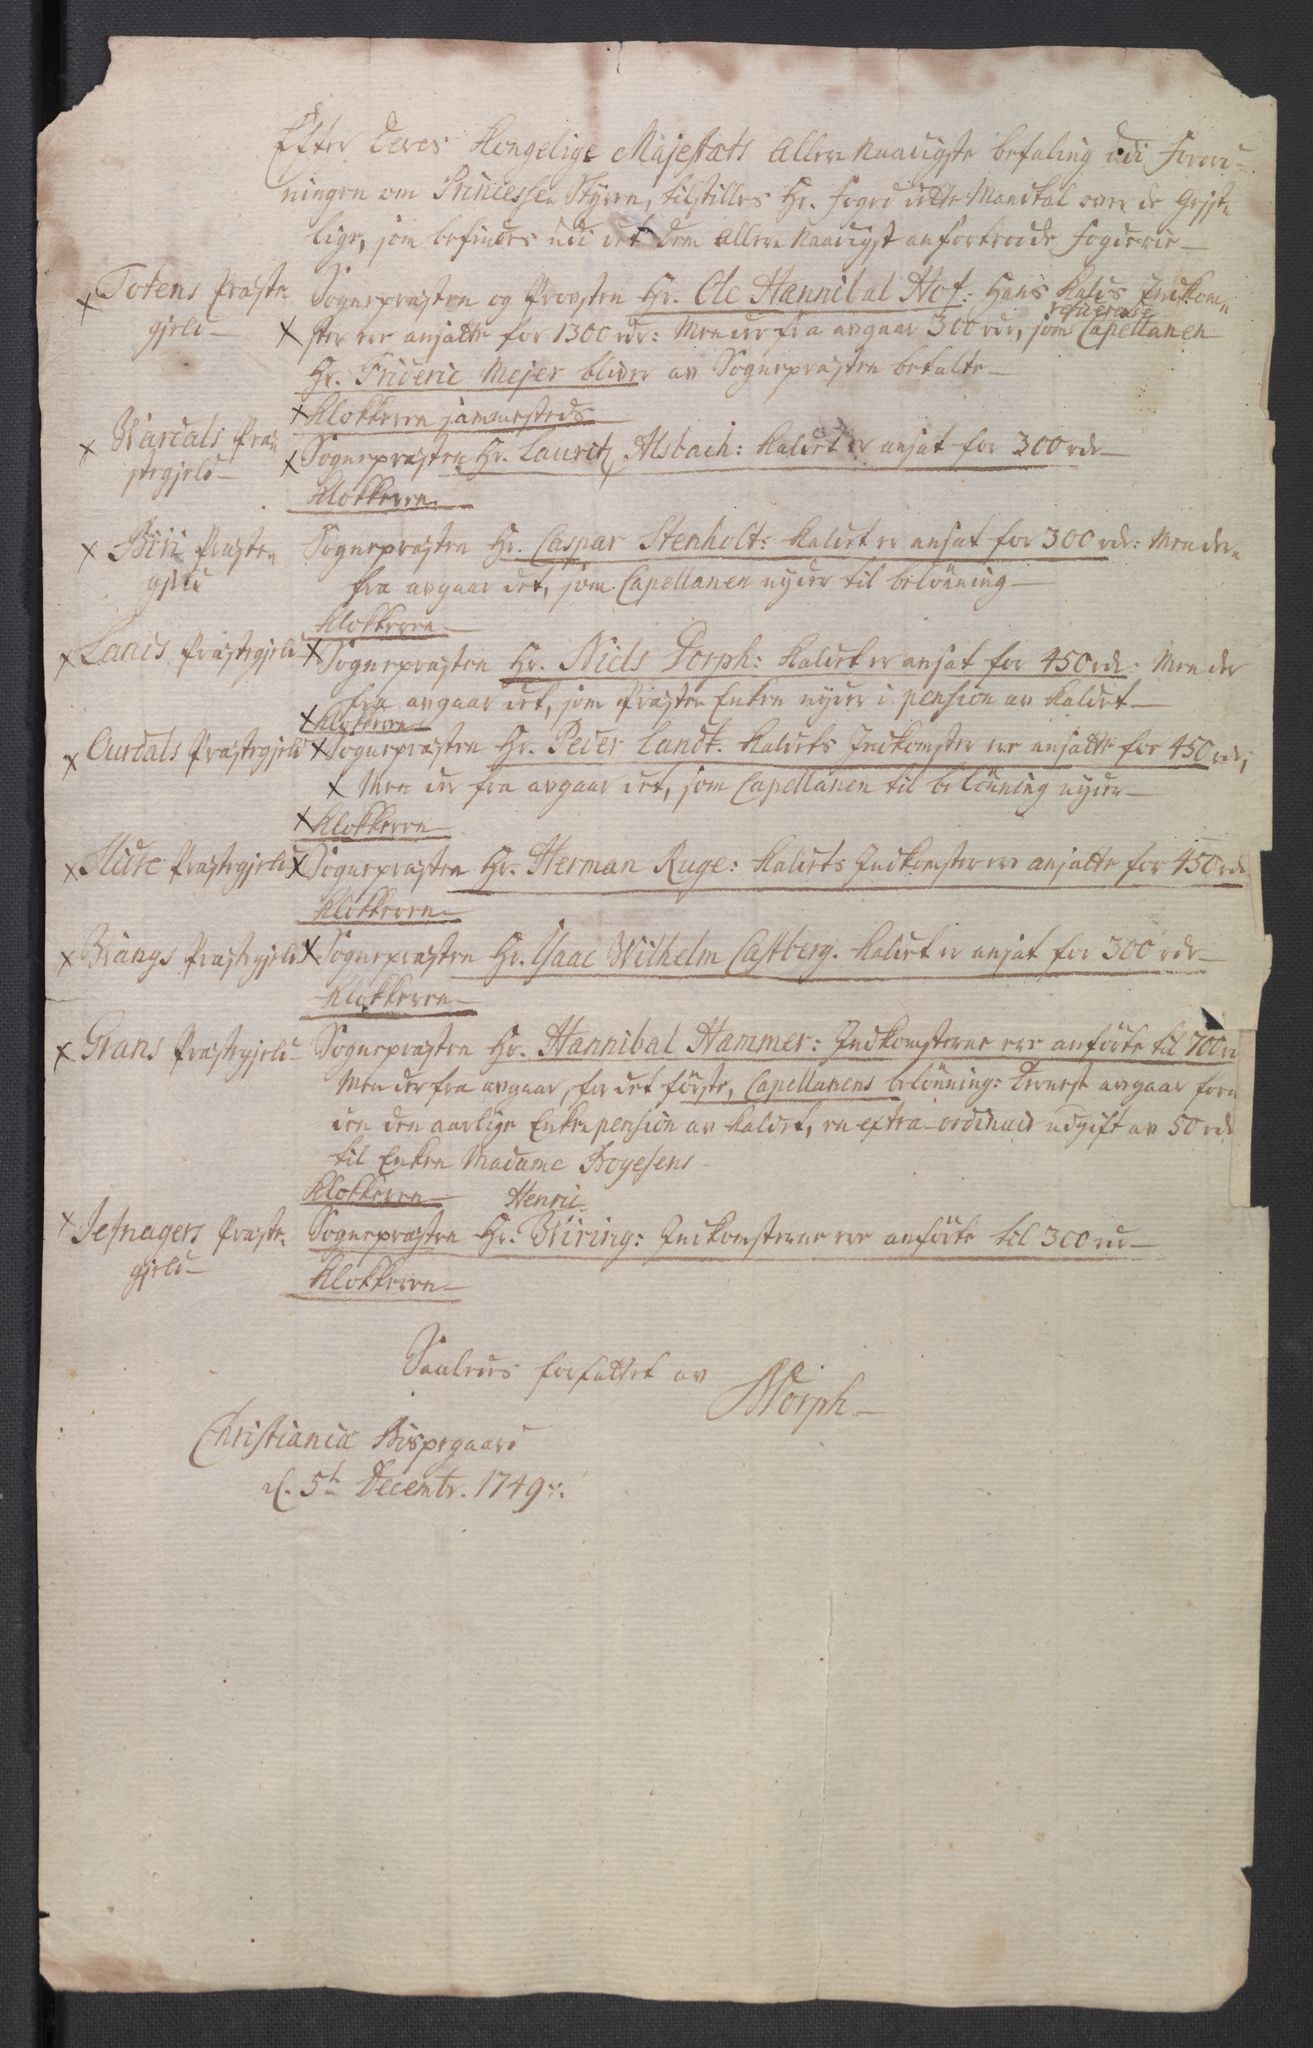 Efter Deres Kongelige Majestæts Allernaadigste befaling udi Forord-
ningen om Princesse Styren, tilstilles Hr. Foged dette Mandtal over de Gejst-
lige, som befindes udi det dem Allernaadigst anfortroede Fogderie-
x Totens Præste
gjeld-
Sognepræsten og Provsten Hr. Ole Hannibal Hof: Hans Kalds Indkom-
x ster ere ansatte for 1300 rdr: Men der fra avgaar 300 rdr, som Capellanen
Hr. Frideric Mejer bliver av Sognepræsten betalte-
x Klokkeren sammesteds
x Wardals Præ-
stegjeld-
x Sognepræsten Hr. Lauritz Alsbach: Kaldet er ansat for 300 rdr-
Klokkeren-
x Biri Præsten
gjeld
Sognepræsten Hr. Caspar Stenholt: Kaldet er ansat for 300 rdr: Men der-
fra avgaar det, som Capellanen nyder til belönning-
Klokkeren-
x Lands Præstegjeld
x Sognepræsten Hr. Niels Dorph: Kaldet er ansat for 450 rdr: Men der
fra avgaar det, som Præste Enken nyder i pension av Kaldet-
x Klokkeren-
x Ourdals Præstegjeld
x Sognepræsten Hr. Peder Landt. Kaldets Indkomster ere ansatte for 450 rdr,
x Men der fra avgaar det, som Capellanen til belönning nyder-
x Klokkeren-
x Slidre Præstegjeld
x Sognepræsten Hr. Herman Ruge: Kaldets Indkomster ere ansatte for 450 rdr
Klokkeren-
x Wangs Præstegjeld
x Sognepræsten Hr. Isaac Wilhelm Castberg. Kaldet er ansat for 300 rdr-
Klokkeren-
x Grans Præstegjeld-
Sognepræsten Hr. Hannibal Hammer: Indkomsterne ere anförte til 700 rd
Men der fra avgaar, for det förste, Capellanens belönning: Dernest avgaar foru
den den aarlige Enkepension av Kaldet, en extra-ordinair udgift av 50 rdr
til Enken Madame Boyesens-
Klokkeren-
Henric
x Jefnagers Præste-
gjeld-
Sognepræsten Hr. Wiring: Indkomsterne ere anförte til 300 rd-
Klokkeren-
Saaledes forfattet av
NDorph-
Christianiæ Bispegaard
d. 5te Decembr. 1749.